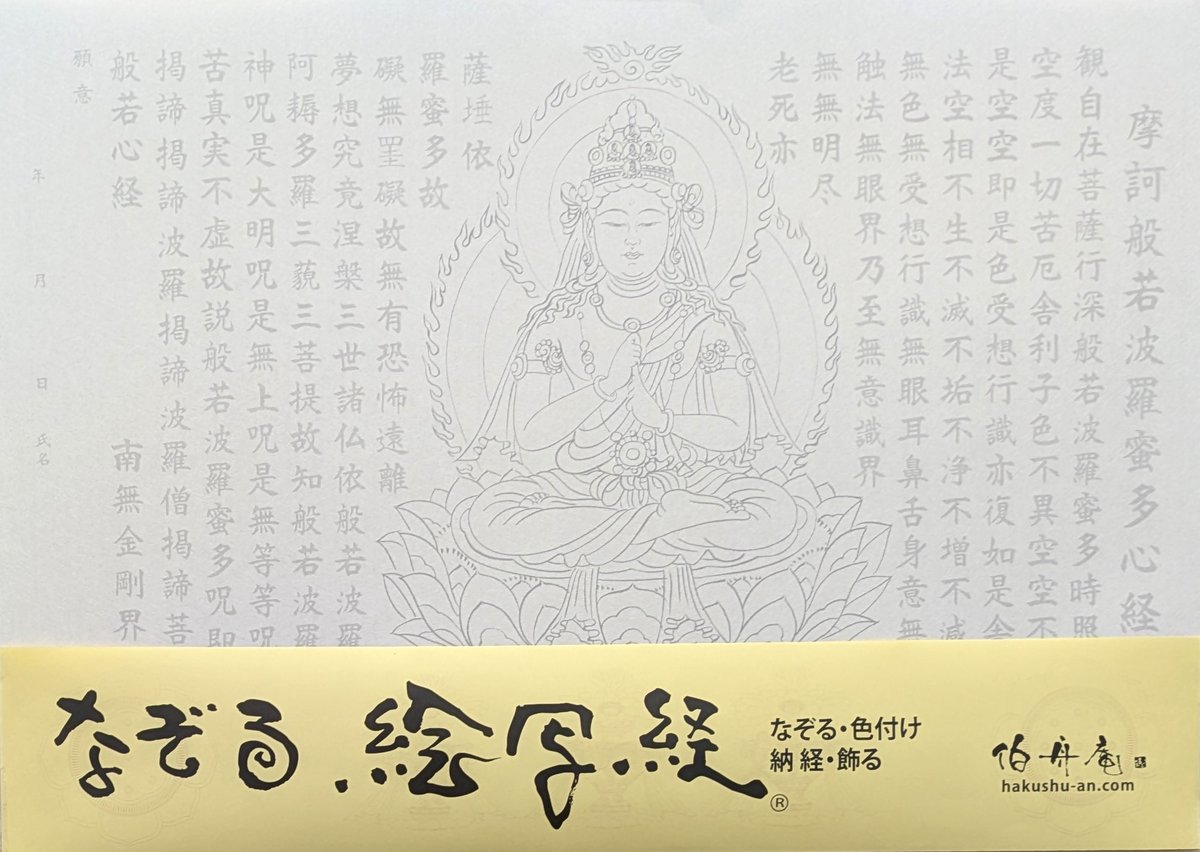 摩訶般若波羅蜜多心経
観自在菩薩行深般若波羅蜜多時照
空度一切苦厄舎利子色不異空空不
是空空即是色受想行識亦復如是舎
法空相不生不滅不垢不浄不増不減
無色無受想行識無眼耳鼻舌身意無
触法無眼界乃至無意識界
無無明尽
老死亦
薩埵依
羅蜜多故
礙無罣礙故無有恐怖遠離
夢想究竟涅槃三世諸仏依般若波羅
阿耨多羅三藐三菩提故知般若波羅
神呪是大明呪是無上呪是無等等呪
苦真実不虚故説般若波羅蜜多呪即
掲諦掲諦波羅掲諦波羅僧掲諦菩
般若心経 南無金剛界
願意
年 月 日 氏名
なぞる絵写経®
なぞる・色付け
納経・飾る
伯舟庵
hakushu-an.com